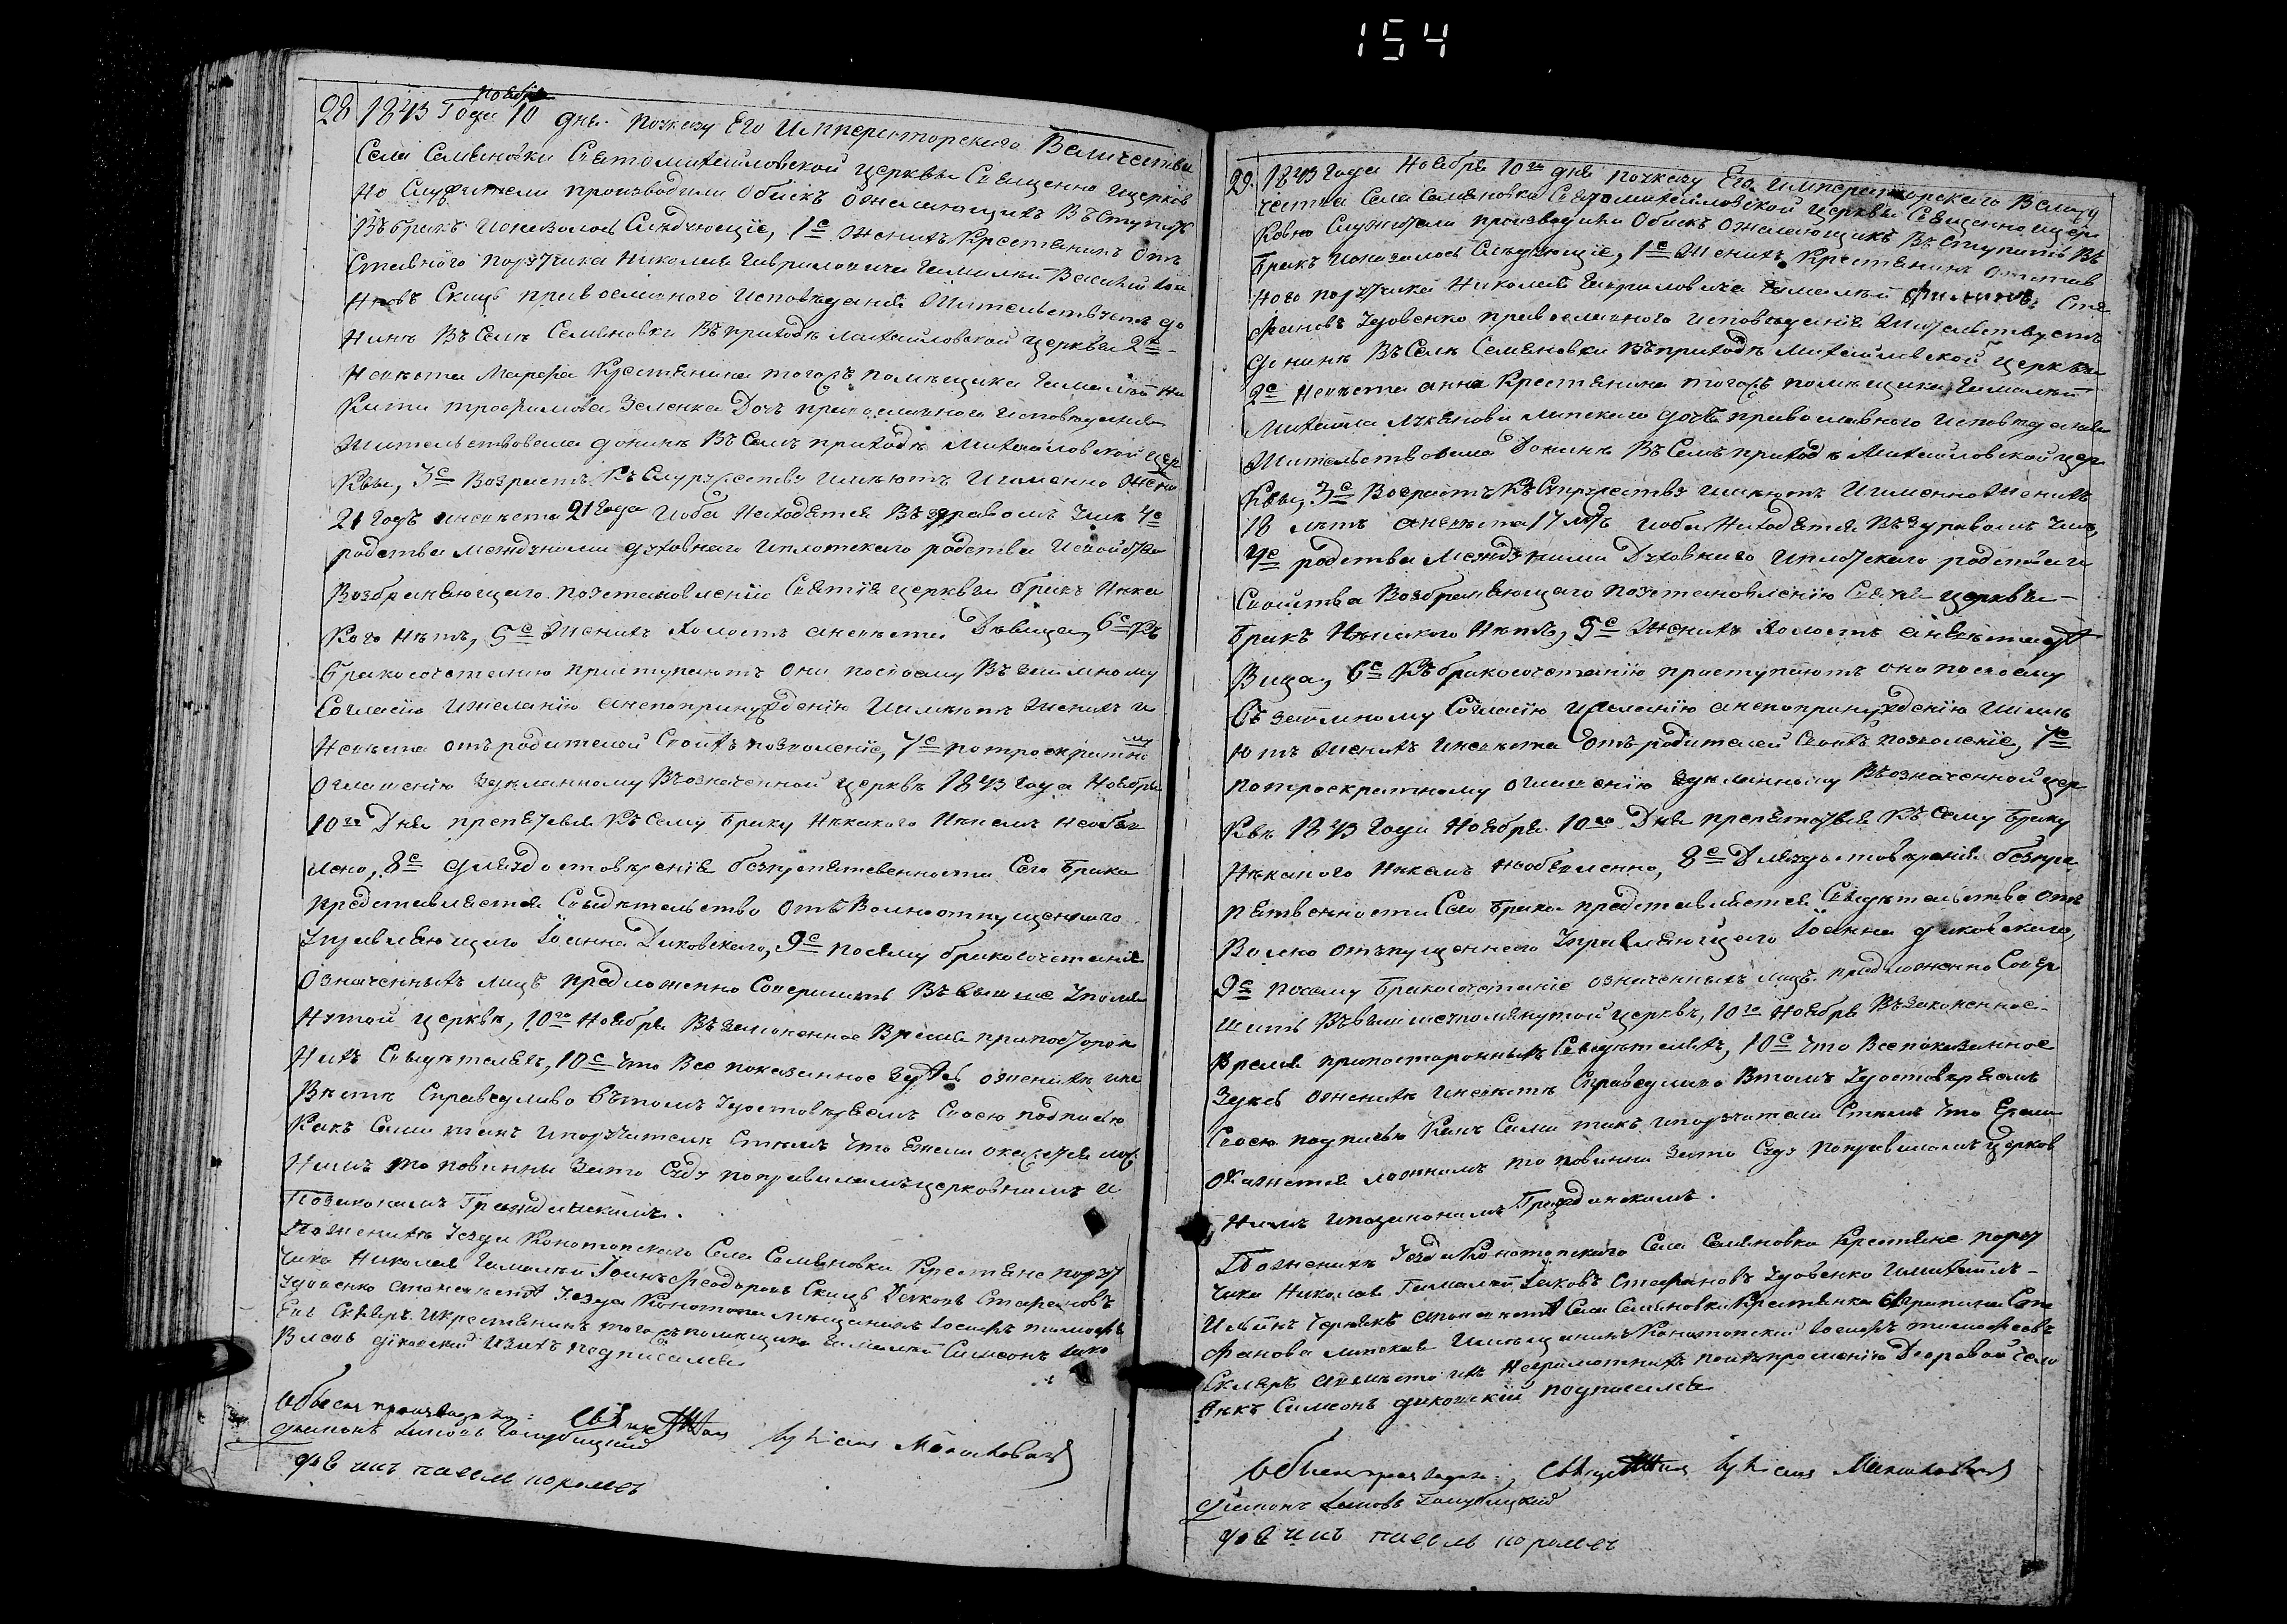 154
28 1843 Года ноября 10 дня. По указу Его Императорского Величества
Села Семяновки Святомихайловской церкви Священно и церков
но Служители производили обыскъ о желающихъ Вступить
Въ бракъ и оказалось Следующіе, 1е Женихъ Крестянинъ От
ставного порутчика Николая Гавриловича Гамалѣи Василій
Скицъ православного исповѣданія Жительствуетъ до
Нинѣ Въ Селѣ Семяновки Въ приходѣ Михайловской церкви 2е
Невѣста Марфа Крестянина тогожъ помѣщика Гамалѣи Ни
Кити Трофимова Зеленка Дочь православного исповѣданія
Жительствовала донинѣ Въ Семъ приходѣ Михайловской цер
Квы, 3е Возрастъ Къ Супружеству имѣютъ и именно Жених
21 Годъ а невѣста 21 Года и оба находятся Въ здравомъ Умѣ 4е
родства между ними духовнаго и плотскаго родства и свойства
Возбраняющаго по установленіи Святія церкви бракъ Ника
Кого нѣтъ, 5е Женихъ Холостъ а невѣста Дѣвица, 6е Къ
бракосочетанію приступаютъ они по своему Взаимному
Согласію и желанію а не по принужденію и имѣютъ Женихъ и
Невѣста отъ родителей Своихъ позволеніе, 7е по троекратному
оглашенію зделанному Въ означенной церквѣ 1843 Года Ноября
10го Дня препятствія Къ Сему браку Никакого Никемъ не объяв
лено, 8е для удостовѣренія безпрепятственности Сего Брака
представляется Свидѣтельство отъ Волноотпущенного
Управляющаго Іоанна Диковского, 9е посему бракосочетаніе
Означенныхъ лицъ предложенно Совершить Въ вышеупомя
Нутой церквѣ, 10го Ноября Въ Законенное Время при посторон
нихъ Свидѣтеляхъ, 10е Что Все показанное здесь о женихѣ и не
Вѣстѣ Справедливо Въ томъ удостовѣряемъ Своею подписью
Какъ Сами такъ и поручители Стѣмъ что Ежели окажется лож
нымъ то повинны За то Суду по правиламъ церковнымъ и
По законамъ Гражданскимъ.
По женихѣ Уезда Конотопского Села Семяновки Крестяне порут
чика Николая Гамалѣи Іоанъ Феодоровъ Скицъ Яковъ Стефановъ
Удовенко а по невѣстѣ Уезда Конотопа мѣщанинъ Іосифъ Тимофѣ
евъ Скляръ и Крестянинъ тогожъ помѣщика Гамалѣи Симеонъ Яко
влевъ Диковскій и за нихъ подписался
Обыскъ производили: Священникъ
Диаконъ Іаковъ Голубицкий
Дячикъ Павелъ
29. 1843 Года Ноября 10го дня По указу Его Императорского Величе
чества Села Семяновки Святомихайловской церкви Священно и цер
Ковно Служители производили Обыскъ о желающихъ Вступить Въ
Бракъ и оказалось Следующіе, 1е Женихъ Крестянинъ отстав
ного порутчика Николая Гавриловича Гамалѣи Филипъ Сте
фановъ Удовенко православного исповѣданія Жительствуетъ
донинѣ Въ Селѣ Семяновки Въ приходѣ Михайловской церкви
2е Невѣста Анна Крестянина тогожъ помѣщика Гамалѣи
Михаила Липского дочь православного исповѣданія
Жительствовала Донинѣ Въ Семъ приходѣ Михайловской цер
Квы, 3е Возрастъ Къ Супружеству имѣютъ и именно Женихъ
18 лѣтъ а невѣста 17 лѣтъ и оба Находятся Въ Здравомъ Умѣ,
4е родства Между ними Духовнаго и плотскаго родства и
Свойства Возбраняющаго по установленію Святія церкви
Бракъ Никакого Нѣтъ, 5е Женихъ Холостъ а невѣста дѣ
Вица, 6е Къ бракосочетанію приступаютъ оно по своему
Взаимному Согласію и желанію а не по принужденію и имѣ
ютъ Женихъ и невѣста отъ родителей Своихъ позволеніе, 7е
по троекратному оглашенію зделанному Въ означенной цер
Квѣ 1843 Года Ноября 10го Дня препятствія Къ Сему Браку
Никакого Никемъ не объявленно, 8е Для удостовѣренія безпре
пятвенности Сего Брака представляется Свидѣтельство отъ
Волно отъпущеннаго Управляющаго Іоанна Диковского,
9е посему Бракосочетаніе означенныхъ лицъ предложенно Совер
шить Въ вышеупомянутой церквѣ, 10го Ноября Въ Законенное
Время при посторонныхъ Свидѣтеляхъ, 10е Что Все показанное
Здесь о женихѣ и невѣстѣ Справедливо Втомъ Удостовѣряемъ
Своею подписью Какъ Сами такъ и поручители Стѣмъ что Ежели
окажется ложнымъ то повинны За то Суду по правиламъ церков
нымъ и по законамъ Гражданскимъ.
По женихѣ Уезда Конотопского Села Семяновки Крестяне порут
чика Николая Гамалѣи Яковъ Стефановъ Удовенко и Михаилъ
Чернякъ а по невѣстѣ Села Семяновки Крестянка Сте
фанова Липская и мѣщанинъ Конотопскій Іосифъ Тимофеевъ
Скляръ а вмѣсто ихъ Неграмотныхъ по ихъ прошенію Дворовой чело
вѣкъ Симеонъ Диковскій подписался
Обыскъ производили: Священникъ
Диаконъ Іаковъ Голубицкий
Дячикъ Павелъ